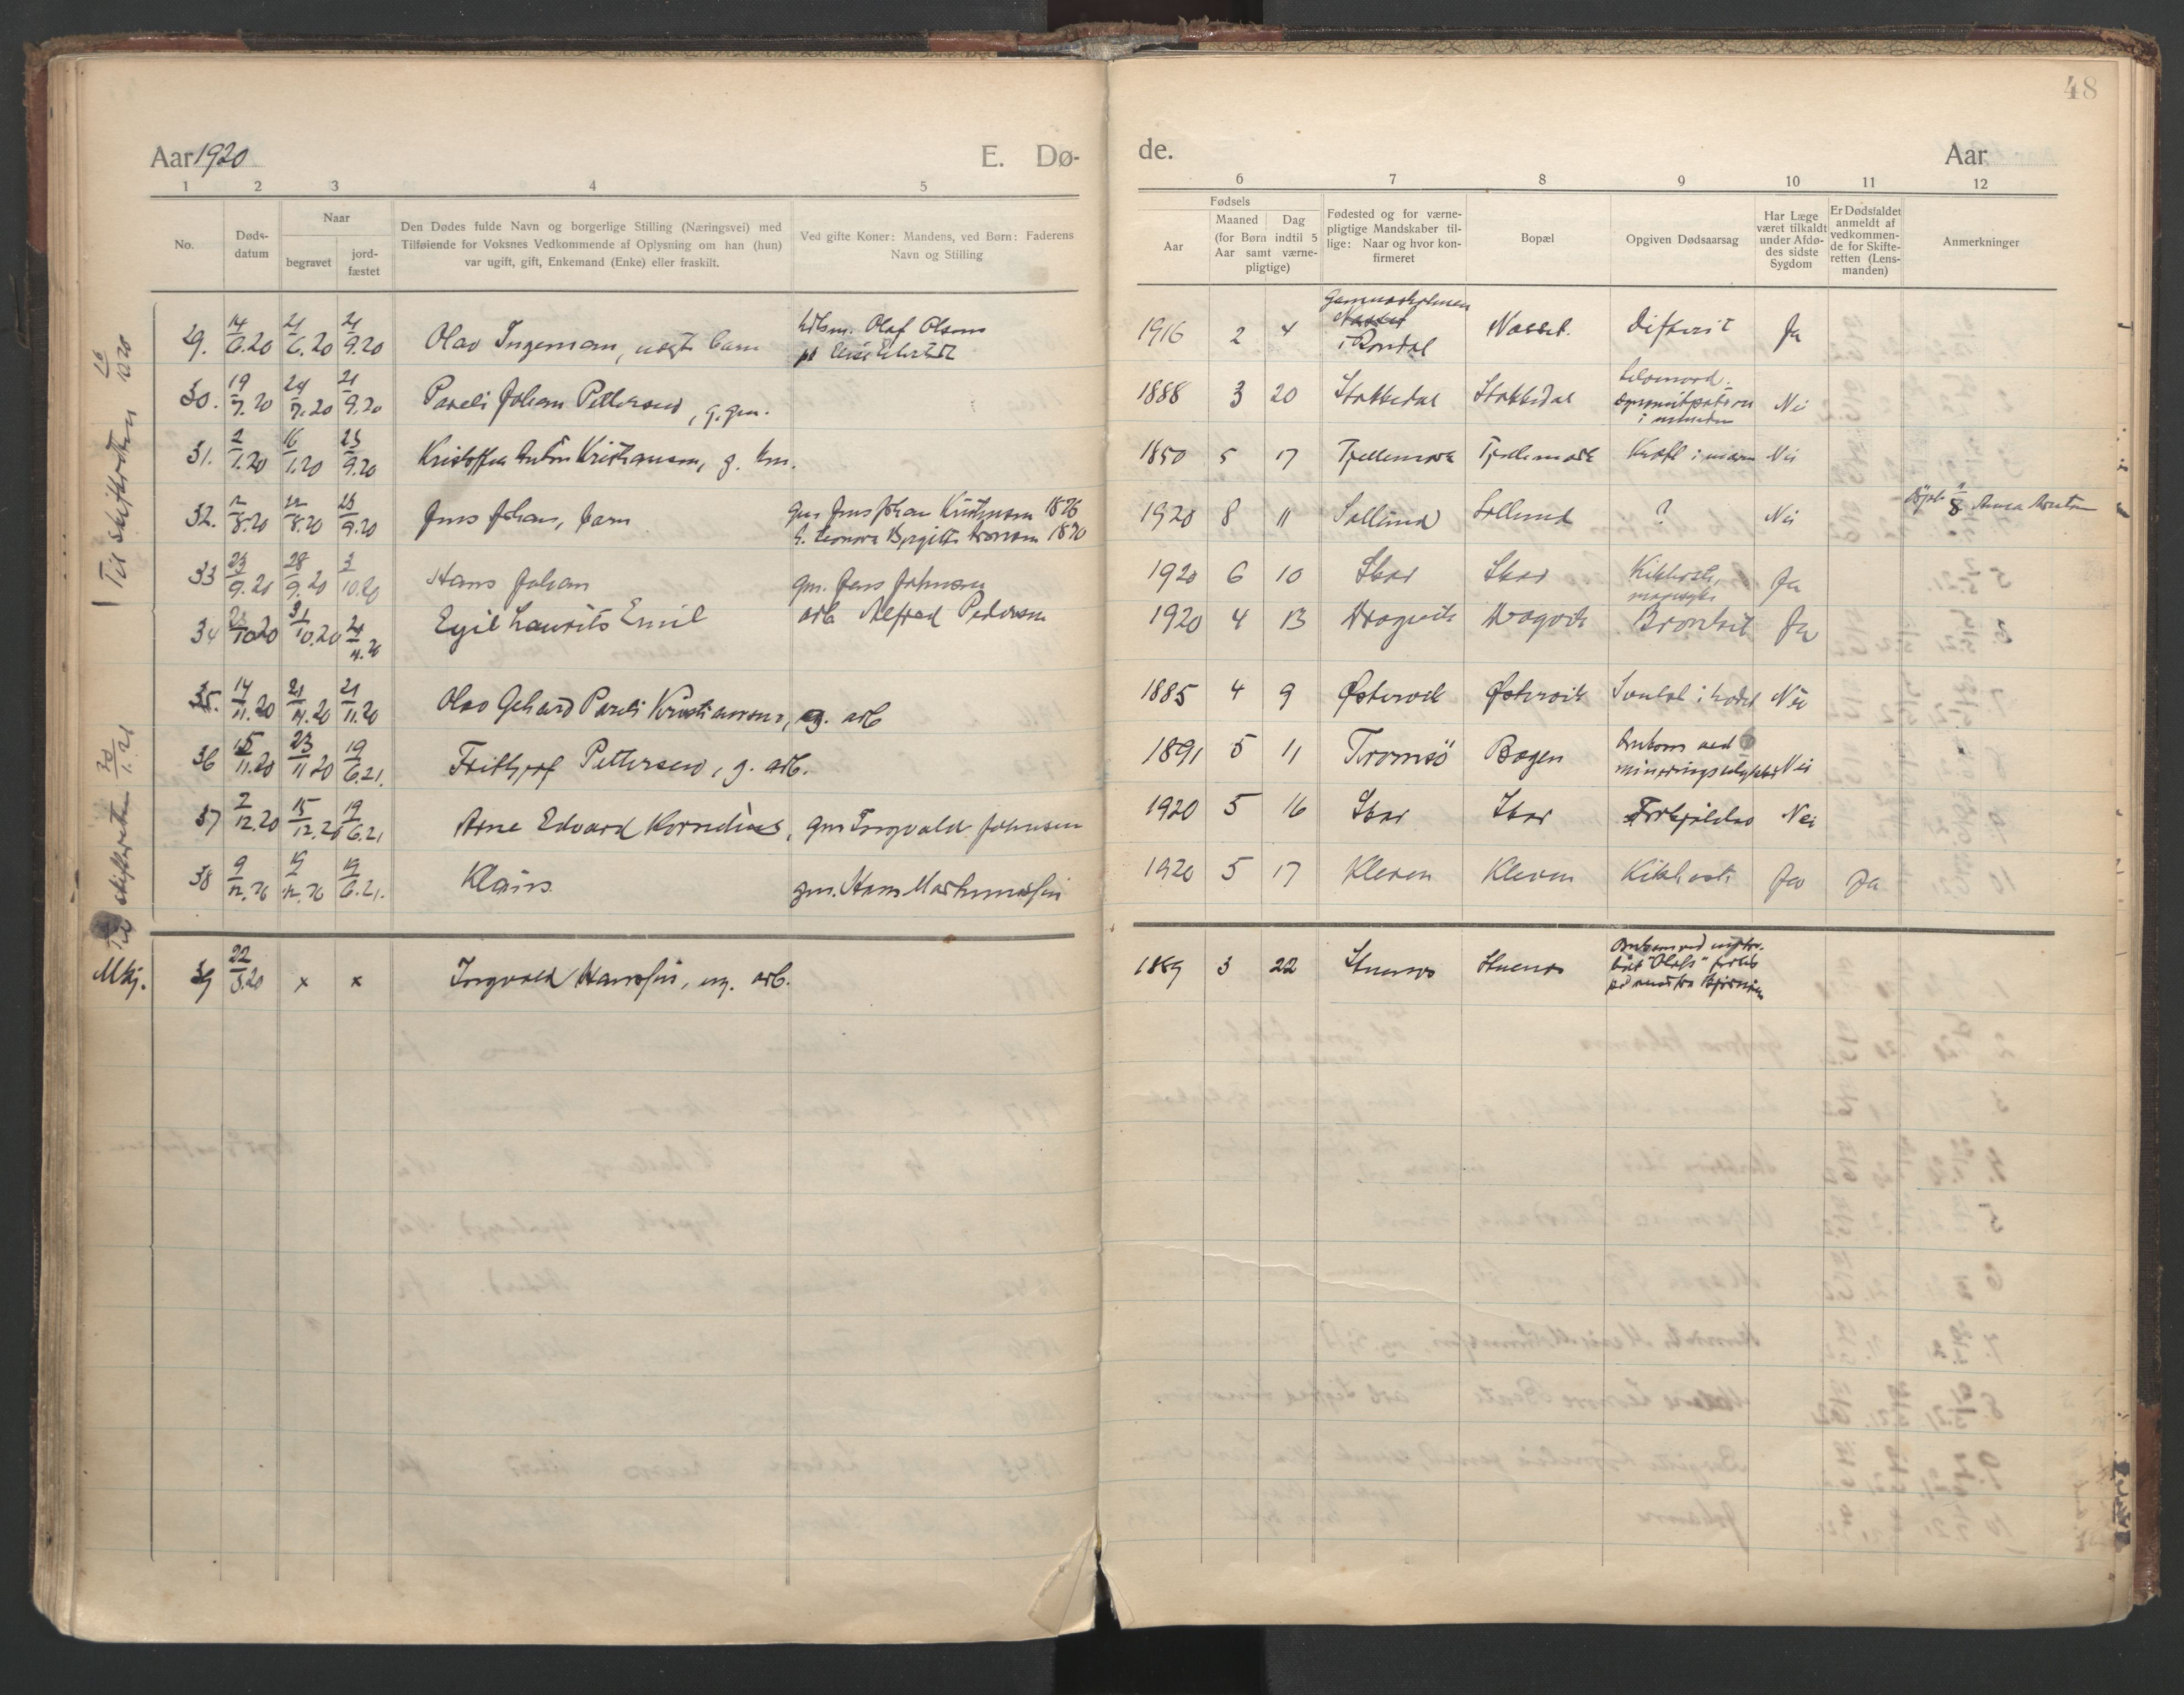 48
Aar 1920
E. Dø-
de.
Aar
1 2 3 4 5
6 7 8 9 10 11 12
No.
Døds-
datum
Naar
begravet
jord-
fæstet
Den Dødes fulde Navn og borgerlige Stilling (Næringsvei) med
Tilføiende for Voksnes Vedkommende af Oplysning om han (hun)
var ugift, gift, Enkemand (Enke) eller fraskilt.
Ved gifte Koner: Mandens, ved Børn: Faderens
Navn og Stilling
Fødsels
Aar
Maaned Dag
(for Børn indtil 5
Aar samt værne-
pligtige)
Fødested og for værne-
pligtige Mandskaber til-
lige: Naar og hvor kon-
firmeret
Bopæl
Opgiven Dødsaarsag
Har Læge
været tilkaldt
under Afdø-
des sidste
Sygdom
Er Dødsfaldet
anmeldt af
vedkommen-
de for Skifte-
retten (Lens-
manden)
Anmerkninger
29. 14/6.20 21/6.20 21/9.20 Olav Ingeman, uegte barn Olaf Olsen
1916 2 4 Nasset Difterit Ja
30. 19/7.20 24/7.20 21/9.20 Pareli Johan Pettersen, g. gm.
1888 3 20 Stakkedal Stakkedal Selvmord Nei
31. 2/1.20 16/1.20 23/9.20 Kristoffer Anton Kristiansen, g. km.
1850 5 17 Tjellemark Tjellemark Kræft i maven Nei
32. 8.20 8.20 23/9.20 Jens Johan, barn gm Jens Johan Kristiansen 1876
Leonora Bergitte 1870
1920 8 11 Sollund Sollund ? Nei
33 23/9.20 28/9.20 3/10.20 Hans Johan gm. Jens Johnsen
1920 6 10 Skar Skar Kikhoste, Ja
34 10.20 31/10.20 21/11.20 Egil Laurits Emil arb Alfred Pedersen
1920 4 13 Dragvik Dragvik Bronkit Ja
35. 14/11.20 21/11.20 21/11.20 Olav Gehard Pareli Kristiansen, ug. arb
1885 4 9 Østervik Østervik i hodet Nei
36 15/11.20 23/11 20 19/6.21. Frithjof Pettersen, g. arb.
1891 5 11 Tromsö Bogen Omkom ved
mineringsulykke Nei
37 2/12.20 15/12.20 19/6.21 Arne Edvard Kornelius, gm Ingvald Johnsen
1920 5 16 Skar Skar Forkjølelse Nei
38 9/12.20 19/12.20 19/6.21. Klaus gm. Hans Martinussen
1920 5 17 Kleven Kleven Kikhoste Ja Ja
Mkj. 39 22/3.20 x x Ingvald Hanssen, ug. arb.
1889 3 22 Omkom ved motor-
båt "Olafs" forlis
Til skifteretten 16/10.20
Til skifteretten 20/1.21